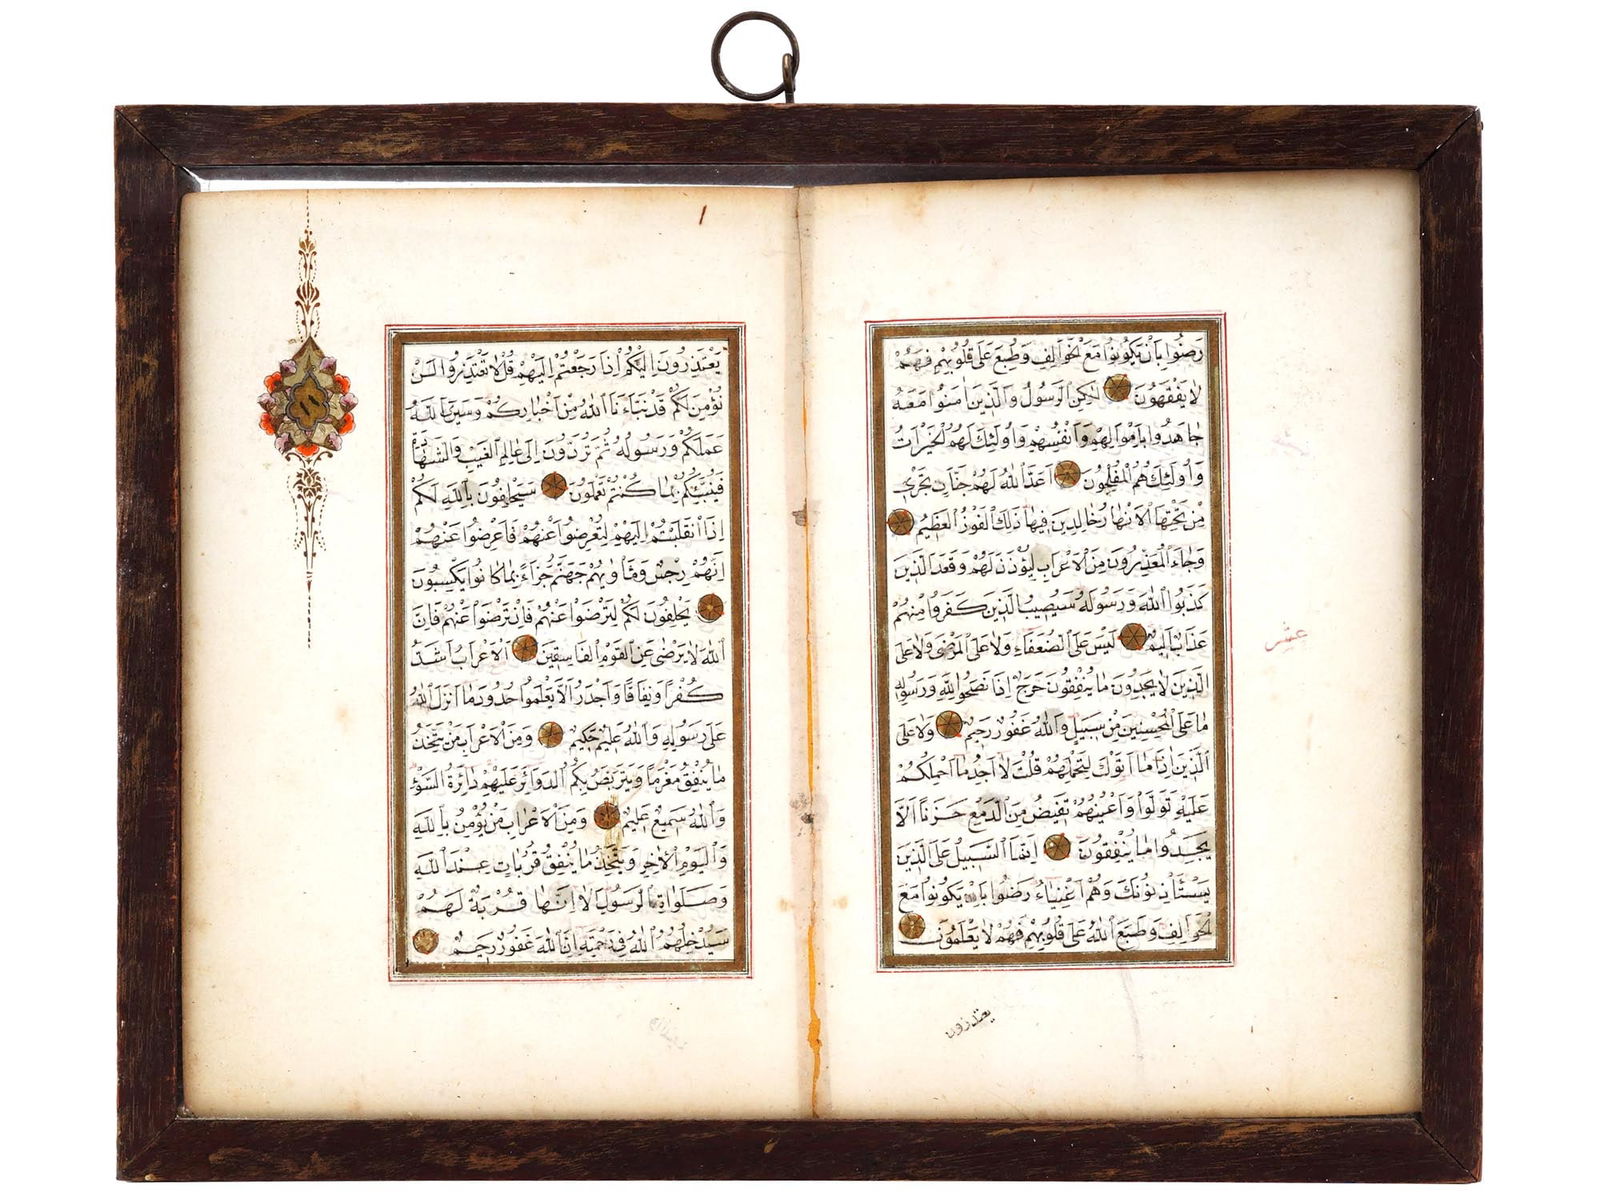 رَضُوا بِأَنْ يَكُونُوا مَعَ الْخَوَالِفِ وَطُبِعَ عَلَى قُلُوبِهِمْ فَهُمْ
لَا يَفْقَهُونَ لَكِنِ الرَّسُولُ وَالَّذِينَ آمَنُوا مَعَهُ
جَاهَدُوا بِأَمْوَالِهِمْ وَأَنْفُسِهِمْ وَأُولَئِكَ لَهُمُ الْخَيْرَاتُ
وَأُولَئِكَ هُمُ الْمُفْلِحُونَ أَعَدَّ اللَّهُ لَهُمْ جَنَّاتٍ تَجْرِي
مِنْ تَحْتِهَا الْأَنْهَارُ خَالِدِينَ فِيهَا ذَلِكَ الْفَوْزُ الْعَظِيمُ
وَجَاءَ الْمُعَذِّرُونَ مِنَ الْأَعْرَابِ لِيُؤْذَنَ لَهُمْ وَقَعَدَ الَّذِينَ
كَذَبُوا اللَّهَ وَرَسُولَهُ سَيُصِيبُ الَّذِينَ كَفَرُوا مِنْهُمْ
عَذَابٌ أَلِيمٌ لَيْسَ عَلَى الضُّعَفَاءِ وَلَا عَلَى الْمَرْضَى وَلَا عَلَى
الَّذِينَ لَا يَجِدُونَ مَا يُنْفِقُونَ حَرَجٌ إِذَا نَصَحُوا لِلَّهِ وَرَسُولِهِ
مَا عَلَى الْمُحْسِنِينَ مِنْ سَبِيلٍ وَاللَّهُ غَفُورٌ رَحِيمٌ وَلَا عَلَى
الَّذِينَ إِذَا مَا أَتَوْكَ لِتَحْمِلَهُمْ قُلْتَ لَا أَجِدُ مَا أَحْمِلُكُمْ
عَلَيْهِ تَوَلَّوْا وَأَعْيُنُهُمْ تَفِيضُ مِنَ الدَّمْعِ حَزَنًا أَلَّا
يَجِدُوا مَا يُنْفِقُونَ إِنَّمَا السَّبِيلُ عَلَى الَّذِينَ
يَسْتَأْذِنُونَكَ وَهُمْ أَغْنِيَاءُ رَضُوا بِأَنْ يَكُونُوا مَعَ
الْخَوَالِفِ وَطَبَعَ اللَّهُ عَلَى قُلُوبِهِمْ فَهُمْ لَا يَعْلَمُونَ
عشر
يعتذرون
يَعْتَذِرُونَ إِلَيْكُمْ إِذَا رَجَعْتُمْ إِلَيْهِمْ قُلْ لَا تَعْتَذِرُوا لَنْ
نُؤْمِنَ لَكُمْ قَدْ نَبَّأَنَا اللَّهُ مِنْ أَخْبَارِكُمْ وَسَيَرَى اللَّهُ
عَمَلَكُمْ وَرَسُولُهُ ثُمَّ تُرَدُّونَ إِلَى عَالِمِ الْغَيْبِ وَالشَّهَادَةِ
فَيُنَبِّئُكُمْ بِمَا كُنْتُمْ تَعْمَلُونَ سَيَحْلِفُونَ بِاللَّهِ لَكُمْ
إِذَا انْقَلَبْتُمْ إِلَيْهِمْ لِتُعْرِضُوا عَنْهُمْ فَأَعْرِضُوا عَنْهُمْ
إِنَّهُمْ رِجْسٌ وَمَأْوَاهُمْ جَهَنَّمُ جَزَاءً بِمَا كَانُوا يَكْسِبُونَ
يَحْلِفُونَ لَكُمْ لِتَرْضَوْا عَنْهُمْ فَإِنْ تَرْضَوْا عَنْهُمْ فَإِنَّ
اللَّهَ لَا يَرْضَى عَنِ الْقَوْمِ الْفَاسِقِينَ الْأَعْرَابُ أَشَدُّ
كُفْرًا وَنِفَاقًا وَأَجْدَرُ أَلَّا يَعْلَمُوا حُدُودَ مَا أَنْزَلَ اللَّهُ
عَلَى رَسُولِهِ وَاللَّهُ عَلِيمٌ حَكِيمٌ وَمِنَ الْأَعْرَابِ مَنْ يَتَّخِذُ
مَا يُنْفِقُ مَغْرَمًا وَيَتَرَبَّصُ بِكُمُ الدَّوَائِرَ عَلَيْهِمْ دَائِرَةُ السَّوْءِ
وَاللَّهُ سَمِيعٌ عَلِيمٌ وَمِنَ الْأَعْرَابِ مَنْ يُؤْمِنُ بِاللَّهِ
وَالْيَوْمِ الْآخِرِ وَيَتَّخِذُ مَا يُنْفِقُ قُرُبَاتٍ عِنْدَ اللَّهِ
وَصَلَوَاتِ الرَّسُولِ أَلَا إِنَّهَا قُرْبَةٌ لَهُمْ
سَيُدْخِلُهُمُ اللَّهُ فِي رَحْمَتِهِ إِنَّ اللَّهَ غَفُورٌ رَحِيمٌ
١١